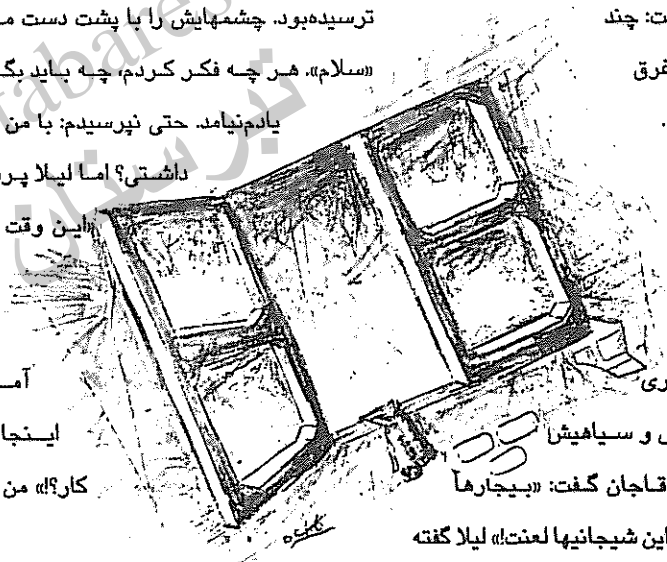 چند
فرق
و سیاهیش
گفت: «بیجارهآ
این شیجانیها لعنت!» لیلا گفته
ترسیده‌بود. چشمهایش را با پشت دست
«سلام». هر چه فکر کردم، چه باید
یادم‌نیامد. حتی نپرسیدم: با من
داشتی؟ اما لیلا
«این وقت
اینجا
کار؟!» من
tabares
تبرستان